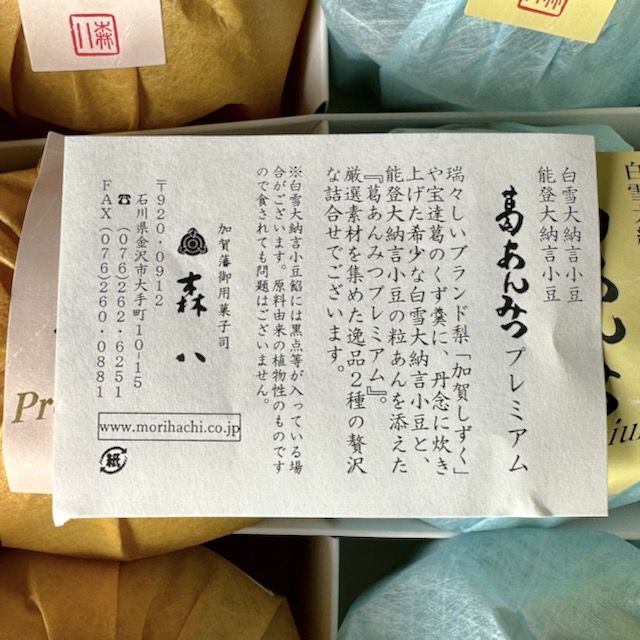 白雪大納言小豆
能登大納言小豆
葛あんみつプレミアム
瑞々しいブランド梨「加賀しずく」
や宝達葛のくず羹に、丹念に炊き
上げた希少な白雪大納言小豆と、
能登大納言小豆の粒あんを添えた
『葛あんみつプレミアム』。
厳選素材を集めた逸品2種の贅沢
な詰合せでございます。
※白雪大納言小豆餡には黒点等が入っている場
合がございます。原料由来の植物性のものです
ので食されても問題はございません。
加賀藩御用菓子司
森八
〒920-0912
石川県金沢市大手町10-15
☎(076)262-6251
FAX(076)260-0881
www.morihachi.co.jp
紙
Pr